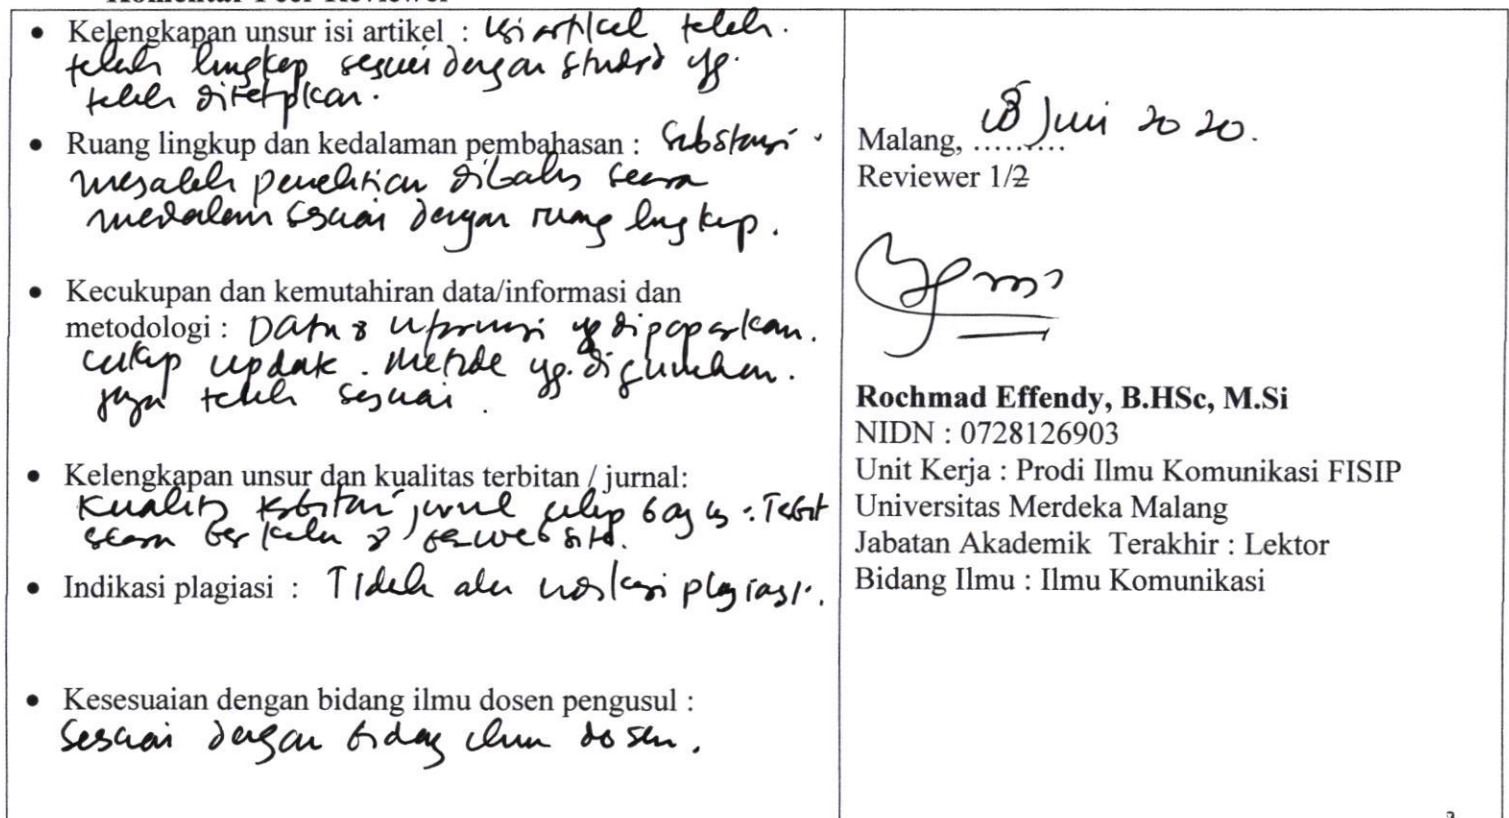 Komentar Peer Reviewer
• Kelengkapan unsur isi artikel : Isi artikel telah
telah lengkap sesuai dengan standard yg.
telah ditetapkan.
• Ruang lingkup dan kedalaman pembahasan : Substansi
masalah penelitian dibahas secara
mendalam sesuai dengan ruang lingkup.
• Kecukupan dan kemutahiran data/informasi dan
metodologi : Data & informasi yg dipaparkan.
cukup update. Metode yg. digunakan.
juga telah sesuai.
• Kelengkapan unsur dan kualitas terbitan / jurnal:
Kualitas terbitan jurnal cukup bagus. Terbit
secara berkala & berwebsite.
• Indikasi plagiasi : Tidak ada indikasi plagiasi.
• Kesesuaian dengan bidang ilmu dosen pengusul :
Sesuai dengan bidang ilmu dosen.
Malang, ......... Juni 2020.
Reviewer 1/2
Rochmad Effendy, B.HSc, M.Si
NIDN : 0728126903
Unit Kerja : Prodi Ilmu Komunikasi FISIP
Universitas Merdeka Malang
Jabatan Akademik Terakhir : Lektor
Bidang Ilmu : Ilmu Komunikasi